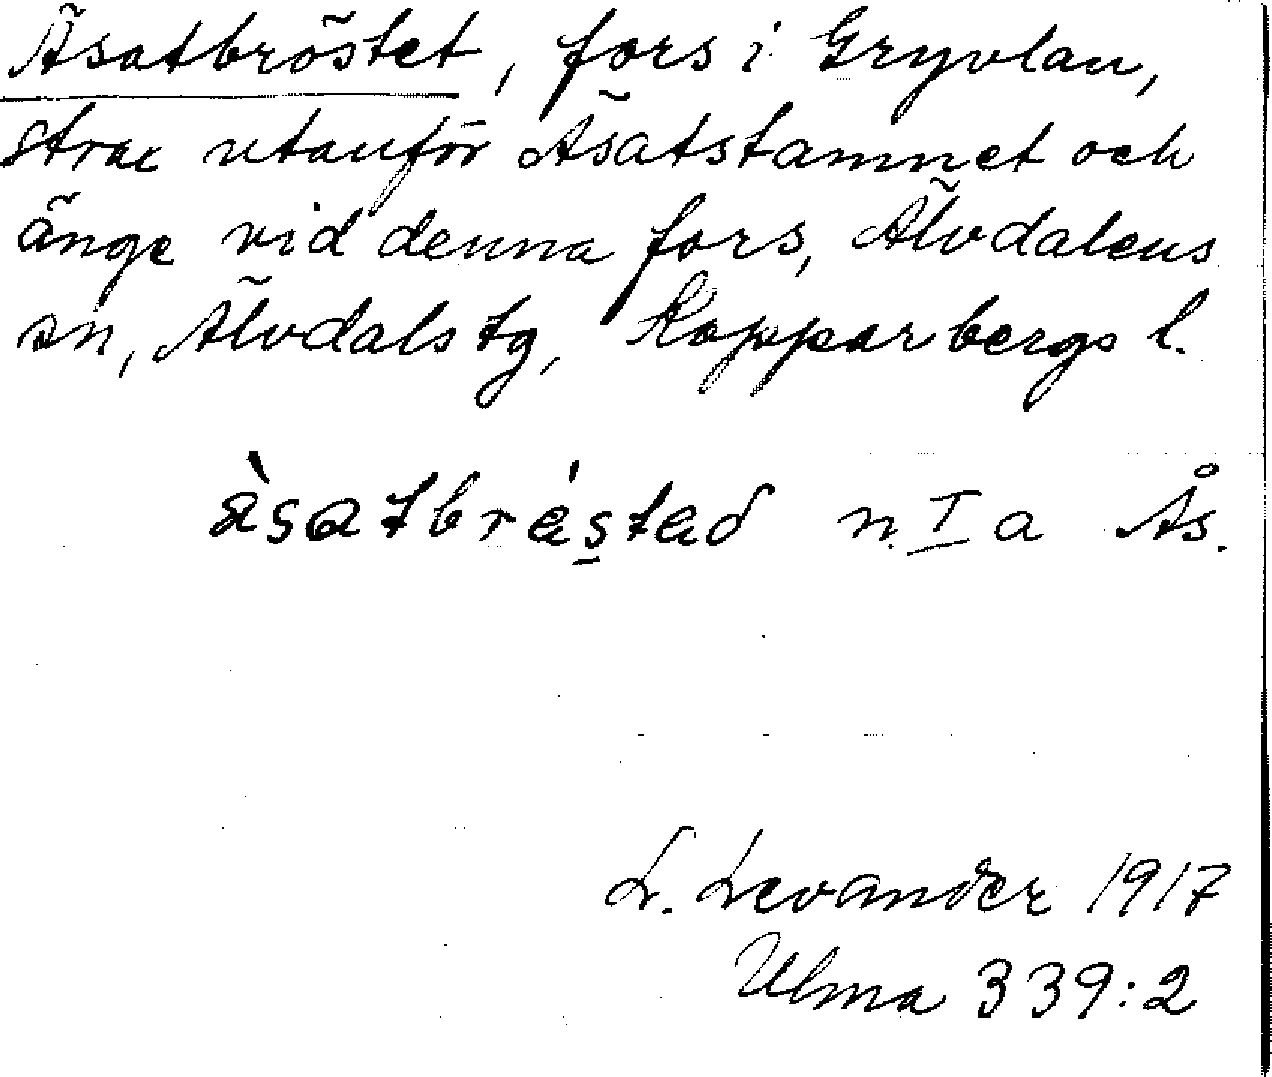 Äsatbröstet, fors i Gryvlan,
strax utanför Äsatstamnet och
änge vid denna fors, Älvdalens
sn, Älvdals tg, Kopparbergs l.
ä̀satbrə́stəd n. I a Ås.
L. Levander 1917
Ulma 339:2